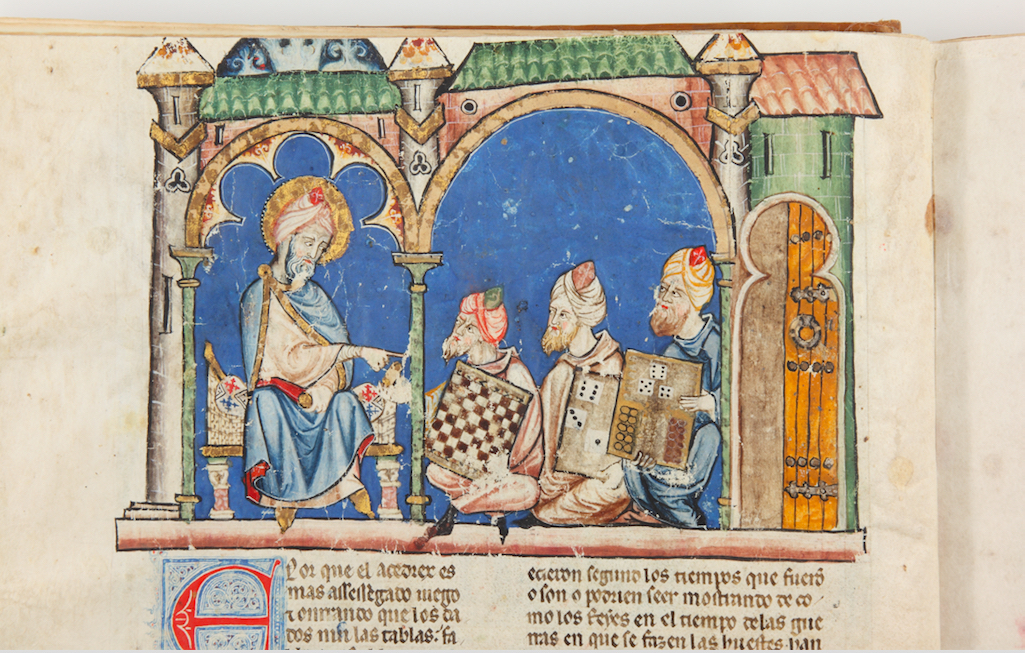 E Por que el acedrex es
mas assessegado iuego
τ onrrado que los da
dos nin las tablas. fa
ecieron segund los tiempos que fuerõ
o son o podrien seer mostrando de co
mo los Reyes en el tiempo delas gue
rras en que se fazen las huestes. han